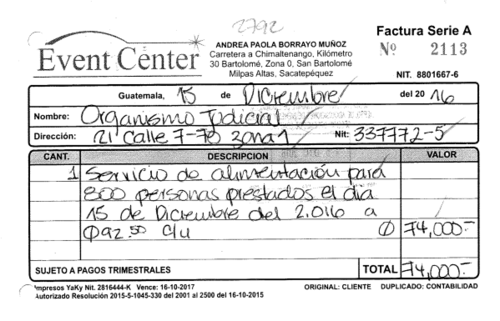 2792
Event Center
ANDREA PAOLA BORRAYO MUÑOZ
Carretera a Chimaltenango, Kilómetro
30 Bartolomé, Zona 0, San Bartolomé
Milpas Altas, Sacatepéquez
Factura Serie A
Nº 2113
NIT. 8801667-6
Guatemala, 15 de Diciembre del 2016
Nombre: Organismo Judicial
Dirección: 21 Calle 7-70 zona 1 Nit: 337772-5
CANT. DESCRIPCION VALOR
1 Servicio de alimentación para
800 personas prestados el dia
15 de Diciembre del 2.016 a
Q92.50 c/u Q 74,000.-
SUJETO A PAGOS TRIMESTRALES TOTAL 74,000.-
Impresos YaKy Nit. 2816444-K Vence: 16-10-2017 ORIGINAL: CLIENTE DUPLICADO: CONTABILIDAD
Autorizado Resolución 2015-5-1045-330 del 2001 al 2500 del 16-10-2015